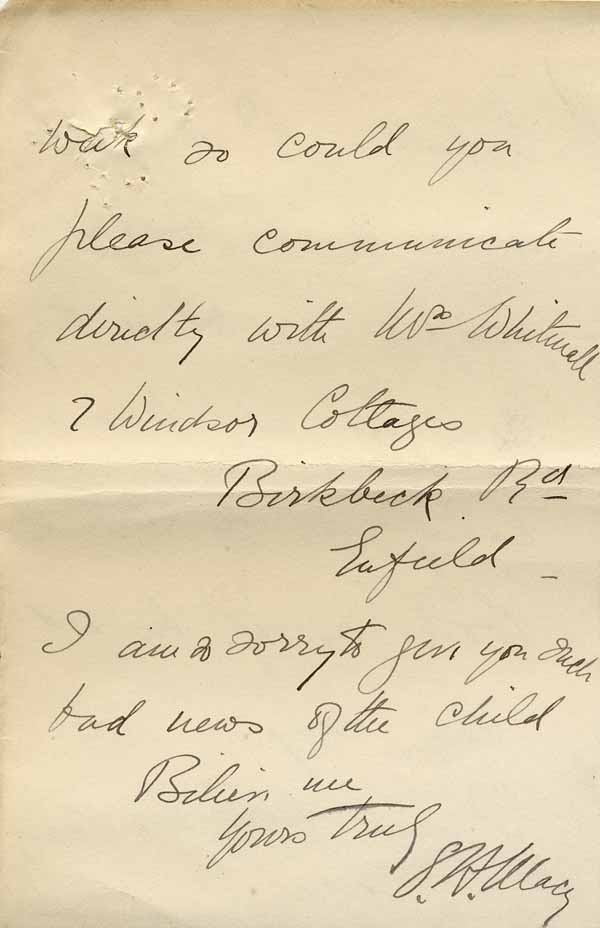 week so could you
please communicate
directly with Mrs Whitwell
7 Windsor Cottages
Birkbeck Rd
Enfield -
I am so sorry to give you such
bad news of the child
Believe me
Yours truly